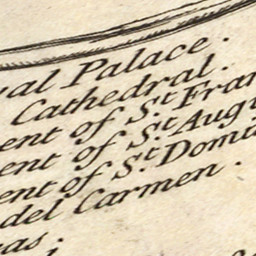 yal Palace.
Cathedral.
ent of S.t Fran
ent of S.t Augu
ent of S.t Domin
del Carmen.
as;